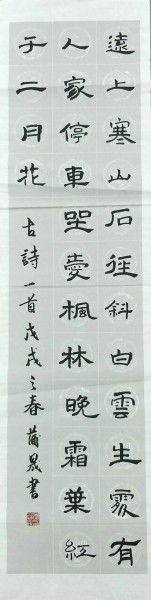 遠上寒山石徑斜白雲生處有
人家停車坐愛楓林晚霜葉紅
于二月花
古詩一首戊戌之春蒲晟書